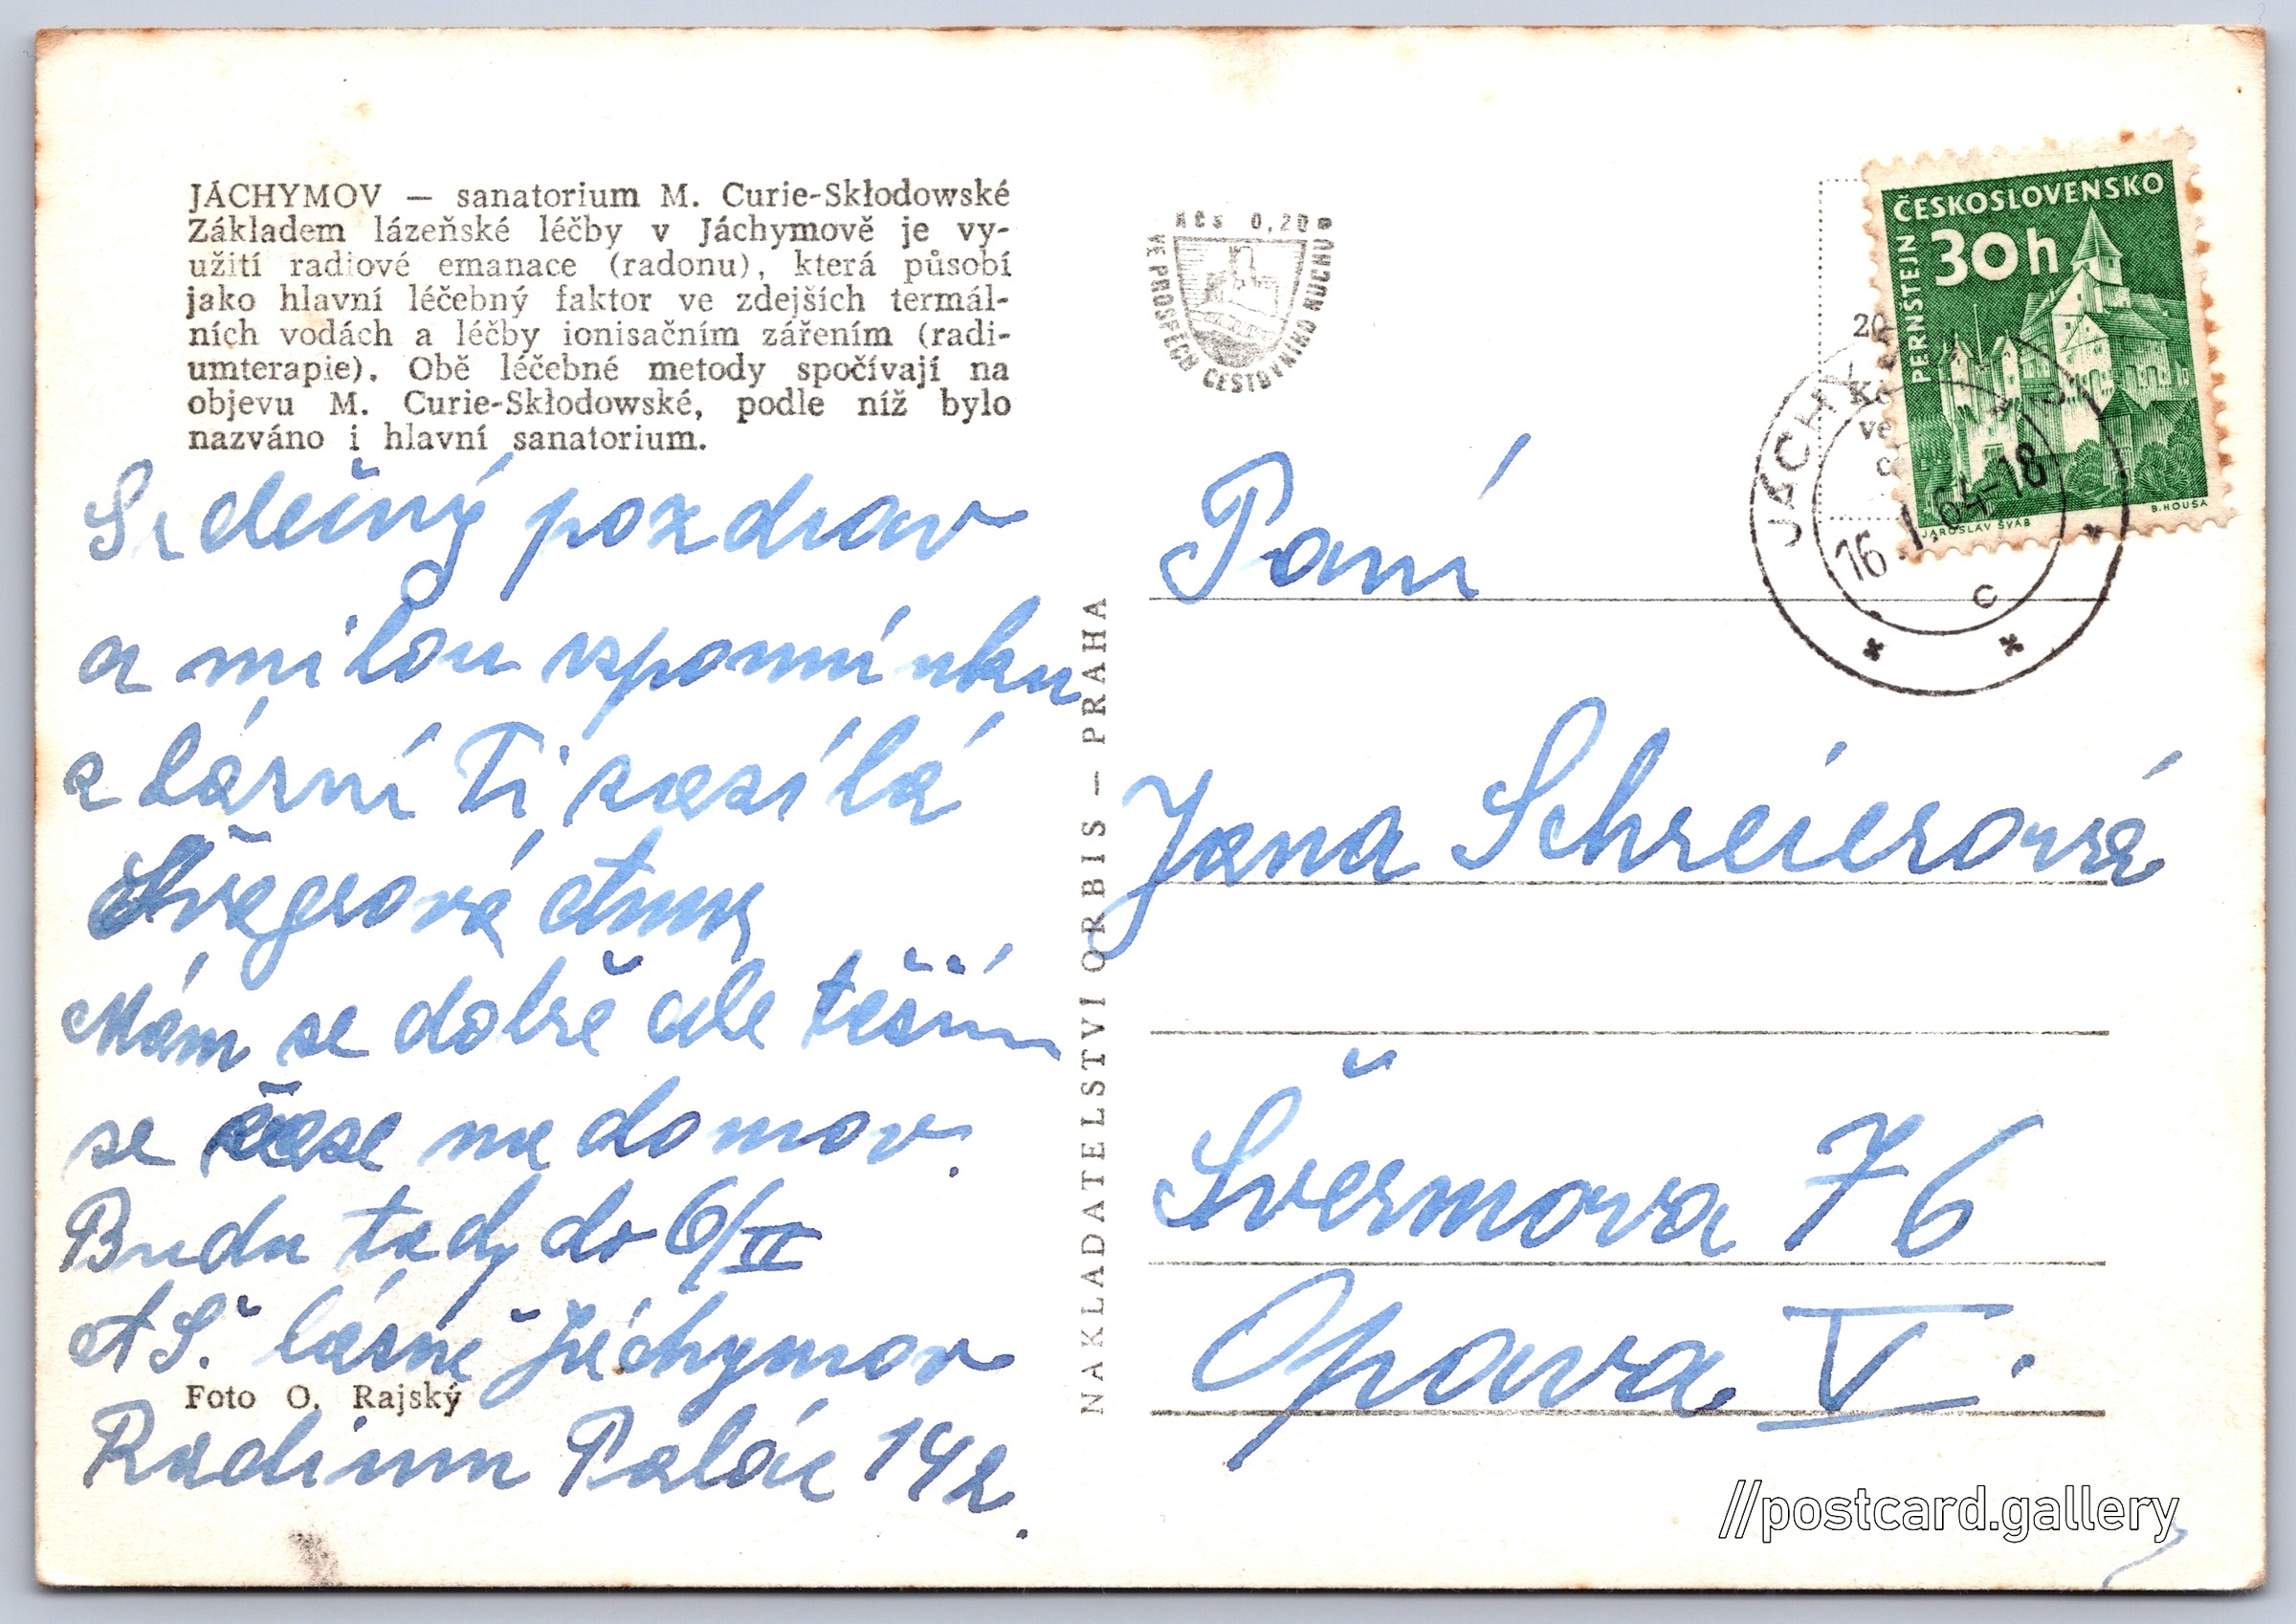 JÁCHYMOV — sanatorium M. Curie-Skłodowské
Základem lázeňské léčby v Jáchymově je vy-
užití radiové emanace (radonu), která působí
jako hlavní léčebný faktor ve zdejších termál-
ních vodách a léčby ionisačním zářením (radi-
umterapie). Obě léčebné metody spočívají na
objevu M. Curie-Skłodowské, podle níž bylo
nazváno i hlavní sanatorium.
Srdečný pozdrav
a milou vzpomínku
z lázní Ti zasílá
Anna
Mám se dobře ale těším
se zase na domov.
Budu tady do 6/II
A Š. lázně Jáchymov
Foto O. Rajský
Radium Palác 142.
NAKLADATELSTVÍ ORBIS — PRAHA
Kčs 0,20
VE PROSPĚCH CESTOVNÍHO RUCHU
ČESKOSLOVENSKO
30h
PERNŠTEJN
JAROSLAV ŠVÁB
B. HOUSA
20
Kč
ve
JÁCHYMOV
16.I.64-18
c
Paní
Jana Schreierová
Švermova 76
Opava V.
//postcard.gallery